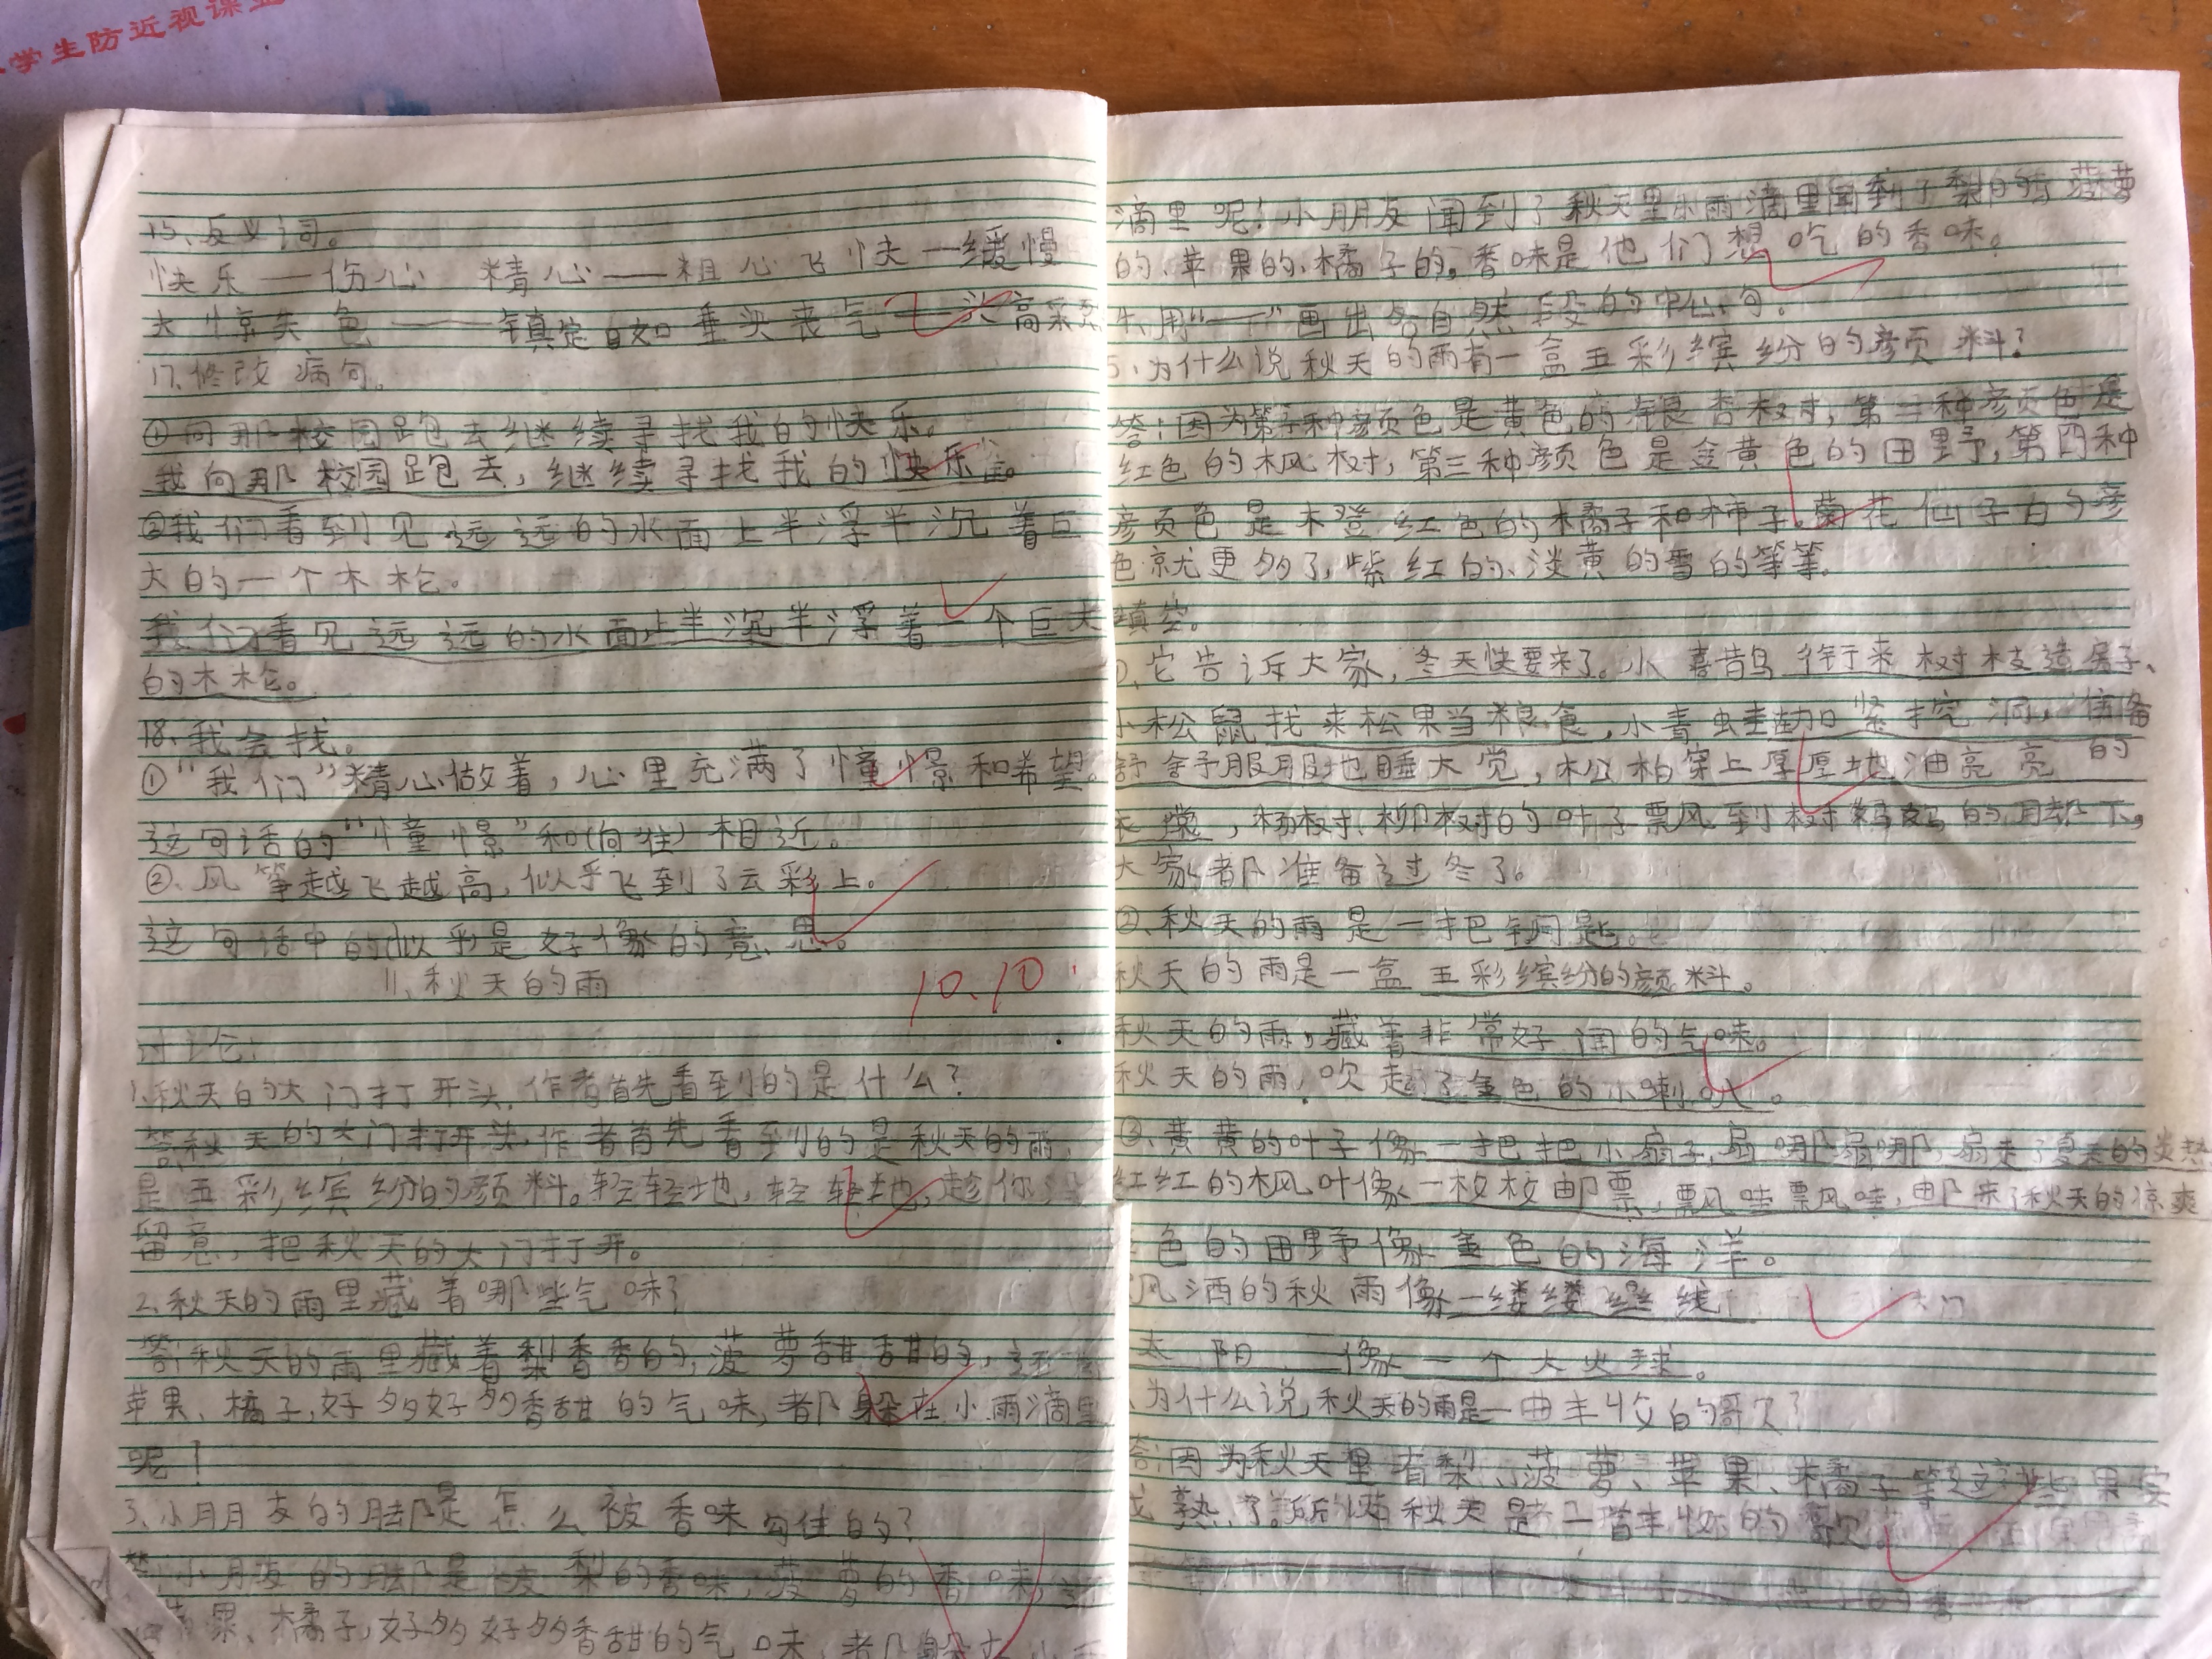 学生防近视课业
15、反义词。
快乐——伤心 精心——粗心 飞快—缓慢
大惊失色——镇定自如 垂头丧气——兴高采烈
17、修改病句。
①向那校园跑去继续寻找我的快乐。
我向那校园跑去，继续寻找我的快乐。
②我们看到见远远的水面上半浮半沉着巨
大的一个木枪。
我们看见远远的水面上半沉半浮着一个巨大
的木枪。
18、我会找。
①“我们”精心做着，心里充满了憧憬和希望。
这句话的“憧憬”和（向往）相近。
②、风筝越飞越高，似乎飞到了云彩上。
这句话中的似乎是好像的意思。
11、秋天的雨
10.10
讨论：
1、秋天的大门打开头，作者首先看到的是什么？
答：秋天的大门打开头，作者首先看到的是秋天的雨，
是五彩缤纷的颜料。轻轻地，轻轻地，趁你没
留意，把秋天的大门打开。
2、秋天的雨里藏着哪些气味？
答：秋天的雨里藏着梨香香的，菠萝甜甜的，还
苹果、橘子，好多好多香甜的气味，都躲在小雨滴里
呢！
3、小朋友的脚是怎么被香味勾住的？
答：小朋友的脚是被梨的香味，菠萝的香味，
苹果、橘子，好多好多香甜的气味，都躲在小雨
滴里呢！小朋友闻到了秋天里小雨滴里闻到了梨的、菠萝
的、苹果的、橘子的。香味是他们想吃的香味。
4、用“——”画出各自然段的中心句。
5、为什么说秋天的雨有一盒五彩缤纷的颜料？
答：因为第一种颜色是黄色的银杏树，第二种颜色是
红色的枫树，第三种颜色是金黄色的田野，第四种
颜色是橙红色的橘子和柿子。菊花仙子的颜
色就更多了，紫红的、淡黄的、雪的等等。
填空。
①、它告诉大家，冬天快要来了。小喜鹊衔来树枝造房子、
小松鼠找来松果当粮食，小青蛙加紧挖洞，准备
舒舒服服地睡大觉，松柏穿上厚厚地油亮亮的
衣裳，杨树、柳树的叶子飘到树妈妈的脚下，
大家都准备过冬了。
②、秋天的雨是一把钥匙。
秋天的雨是一盒五彩缤纷的颜料。
秋天的雨，藏着非常好闻的气味。
秋天的雨，吹起了金色的小喇叭。
③、黄黄的叶子像一把把小扇子，扇哪扇哪，扇走了夏天的炎热
红红的枫叶像一枚枚邮票，飘哇飘哇，邮来了秋天的凉爽
色的田野像金色的海洋。
洒的秋雨像一缕缕丝线
太阳像一个大火球。
为什么说秋天的雨是一曲丰收的歌？
答：因为秋天里有梨、菠萝、苹果、橘子等这些果实
成熟了。所以秋天是一首丰收的歌。